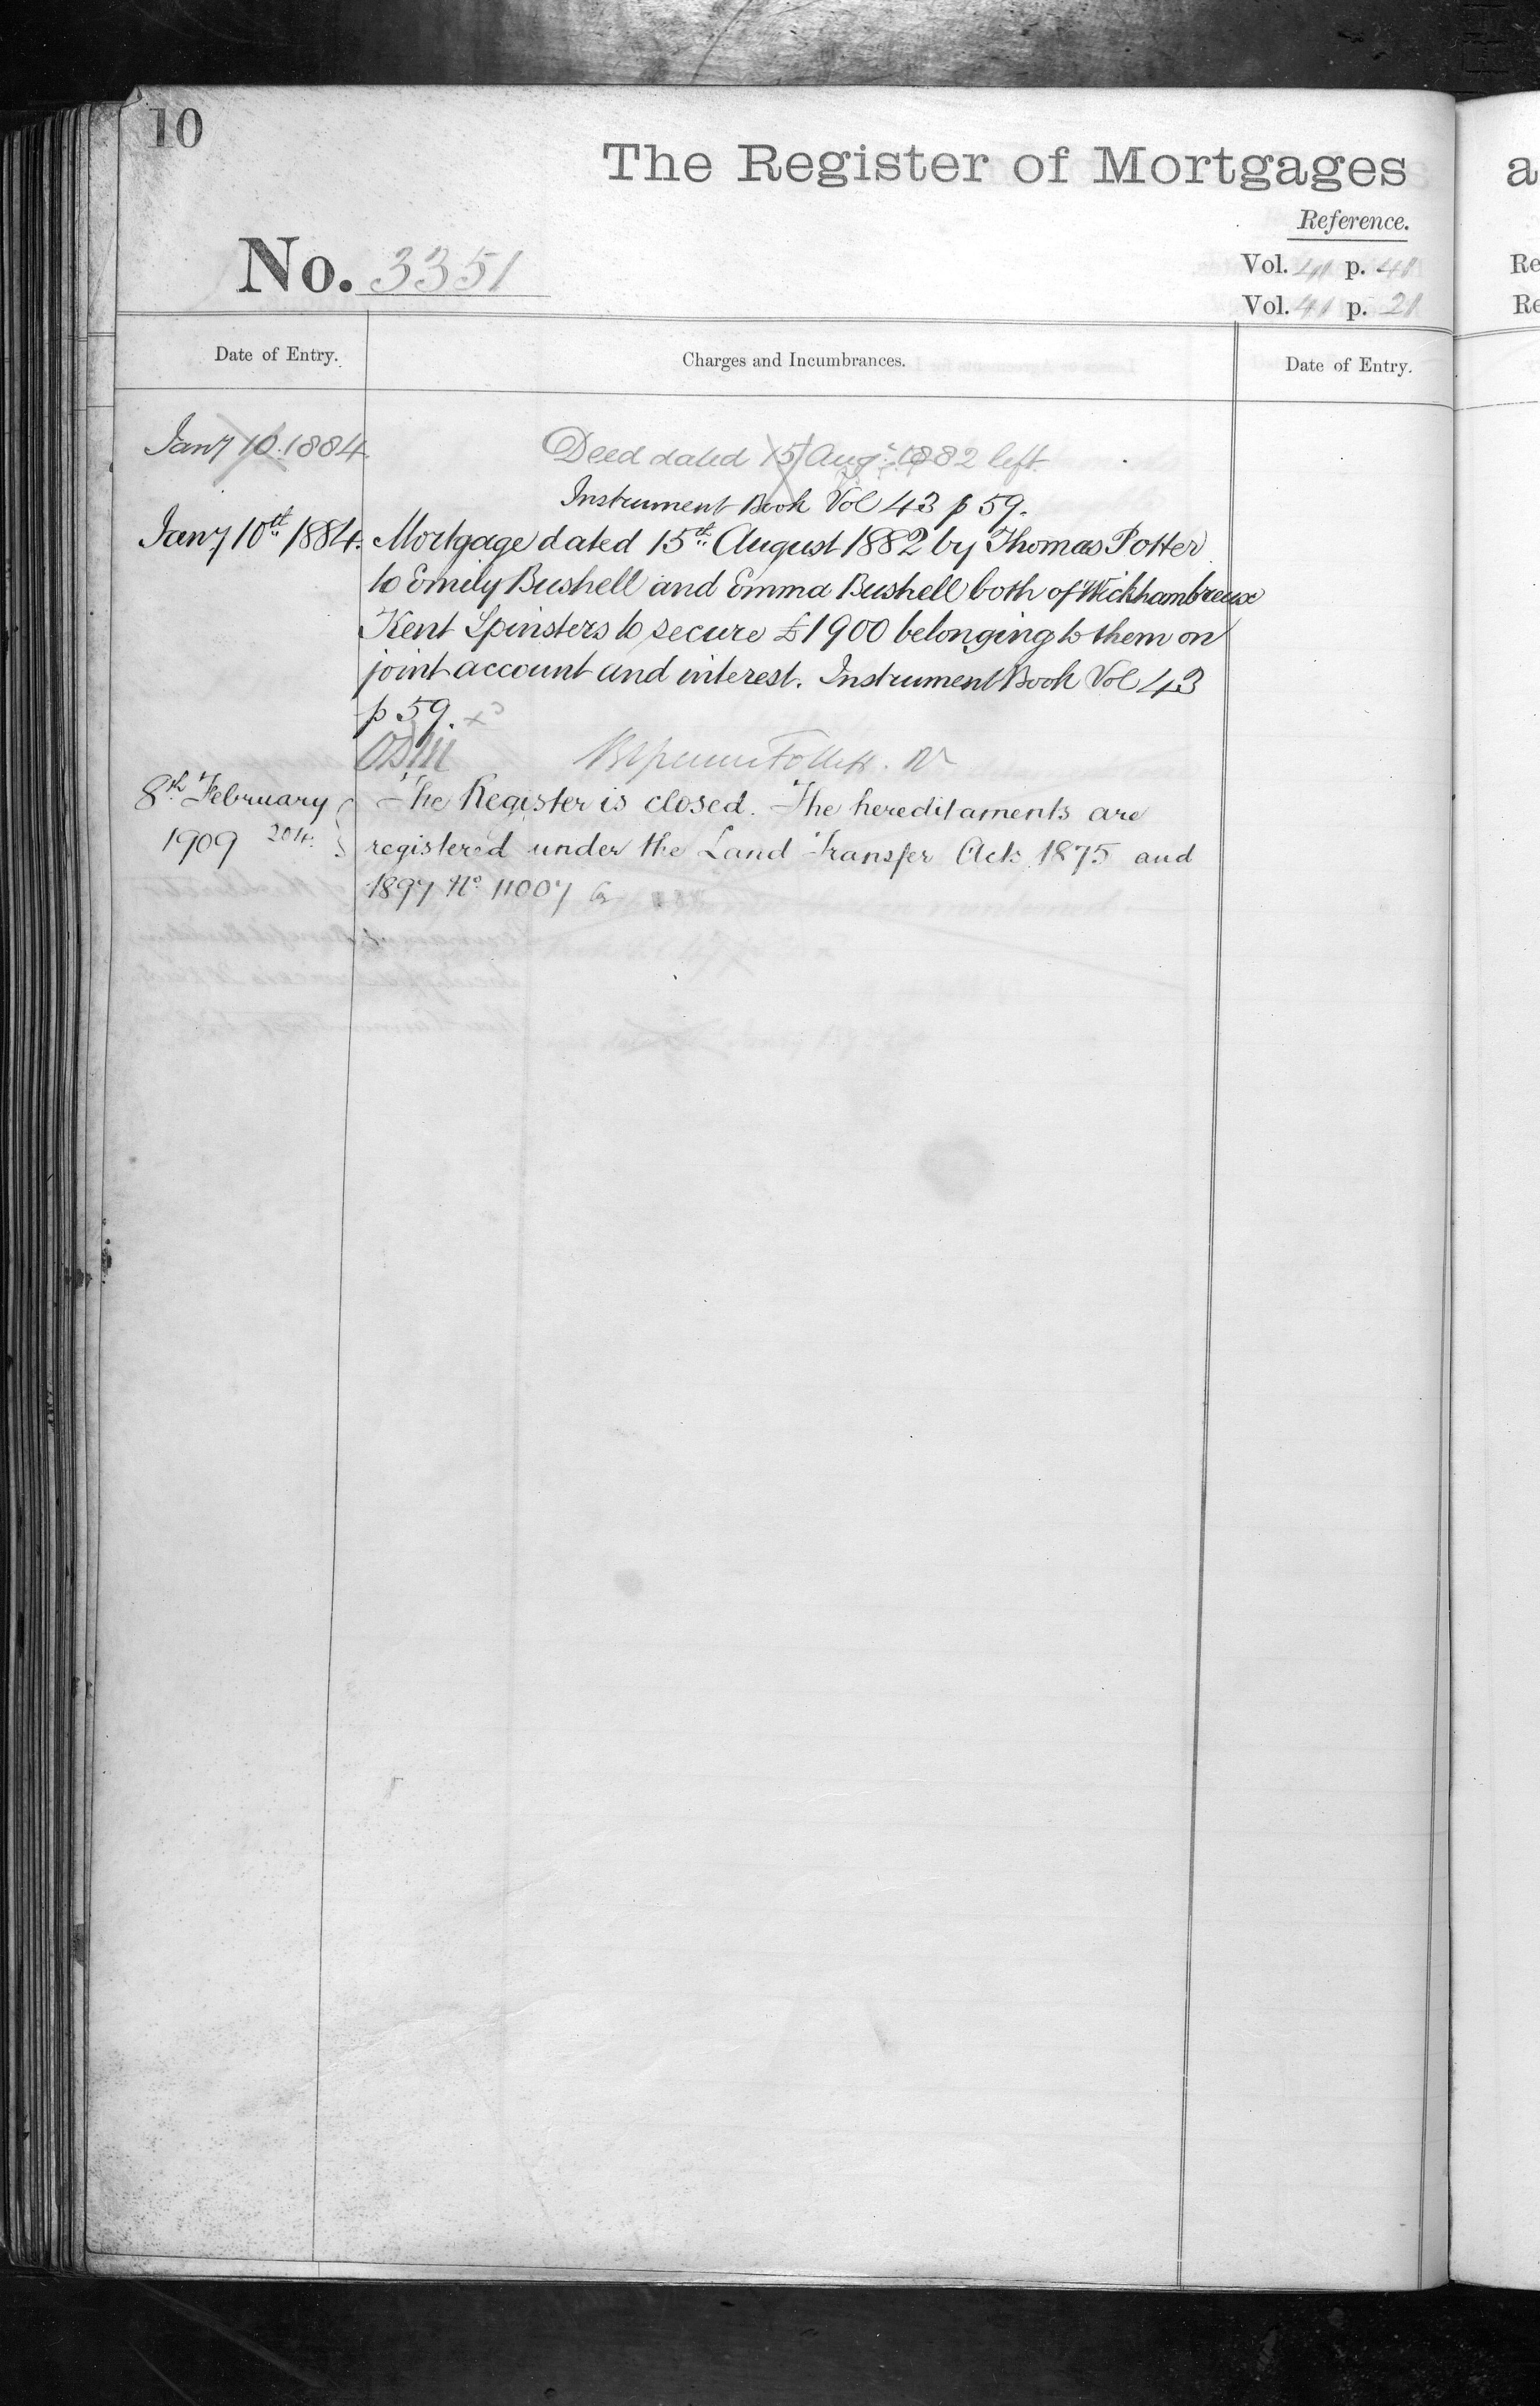 10
The Register of Mortgages
Reference.
No. 3351
Vol. 41 p. 41
Vol. 41 p. 21
Date of Entry.
Charges and Incumbrances.
Date of Entry.
Jany 10. 1884
Deed dated 15 Augt 1882 left
Instrument Book Vol 43 p 59.
Jany 10th 1884. Mortgage dated 15th August 1882 by Thomas Potter
to Emily Bushell and Emma Bushell both of Wickhambreux
Kent Spinsters to secure £1900 belonging to them on
joint account and interest. Instrument Book Vol 43
p 59.
8th February
1909
The Register is closed. The hereditaments are
registered under the Land Transfer Acts 1875 and
1897 No 11007
a
Re
Re